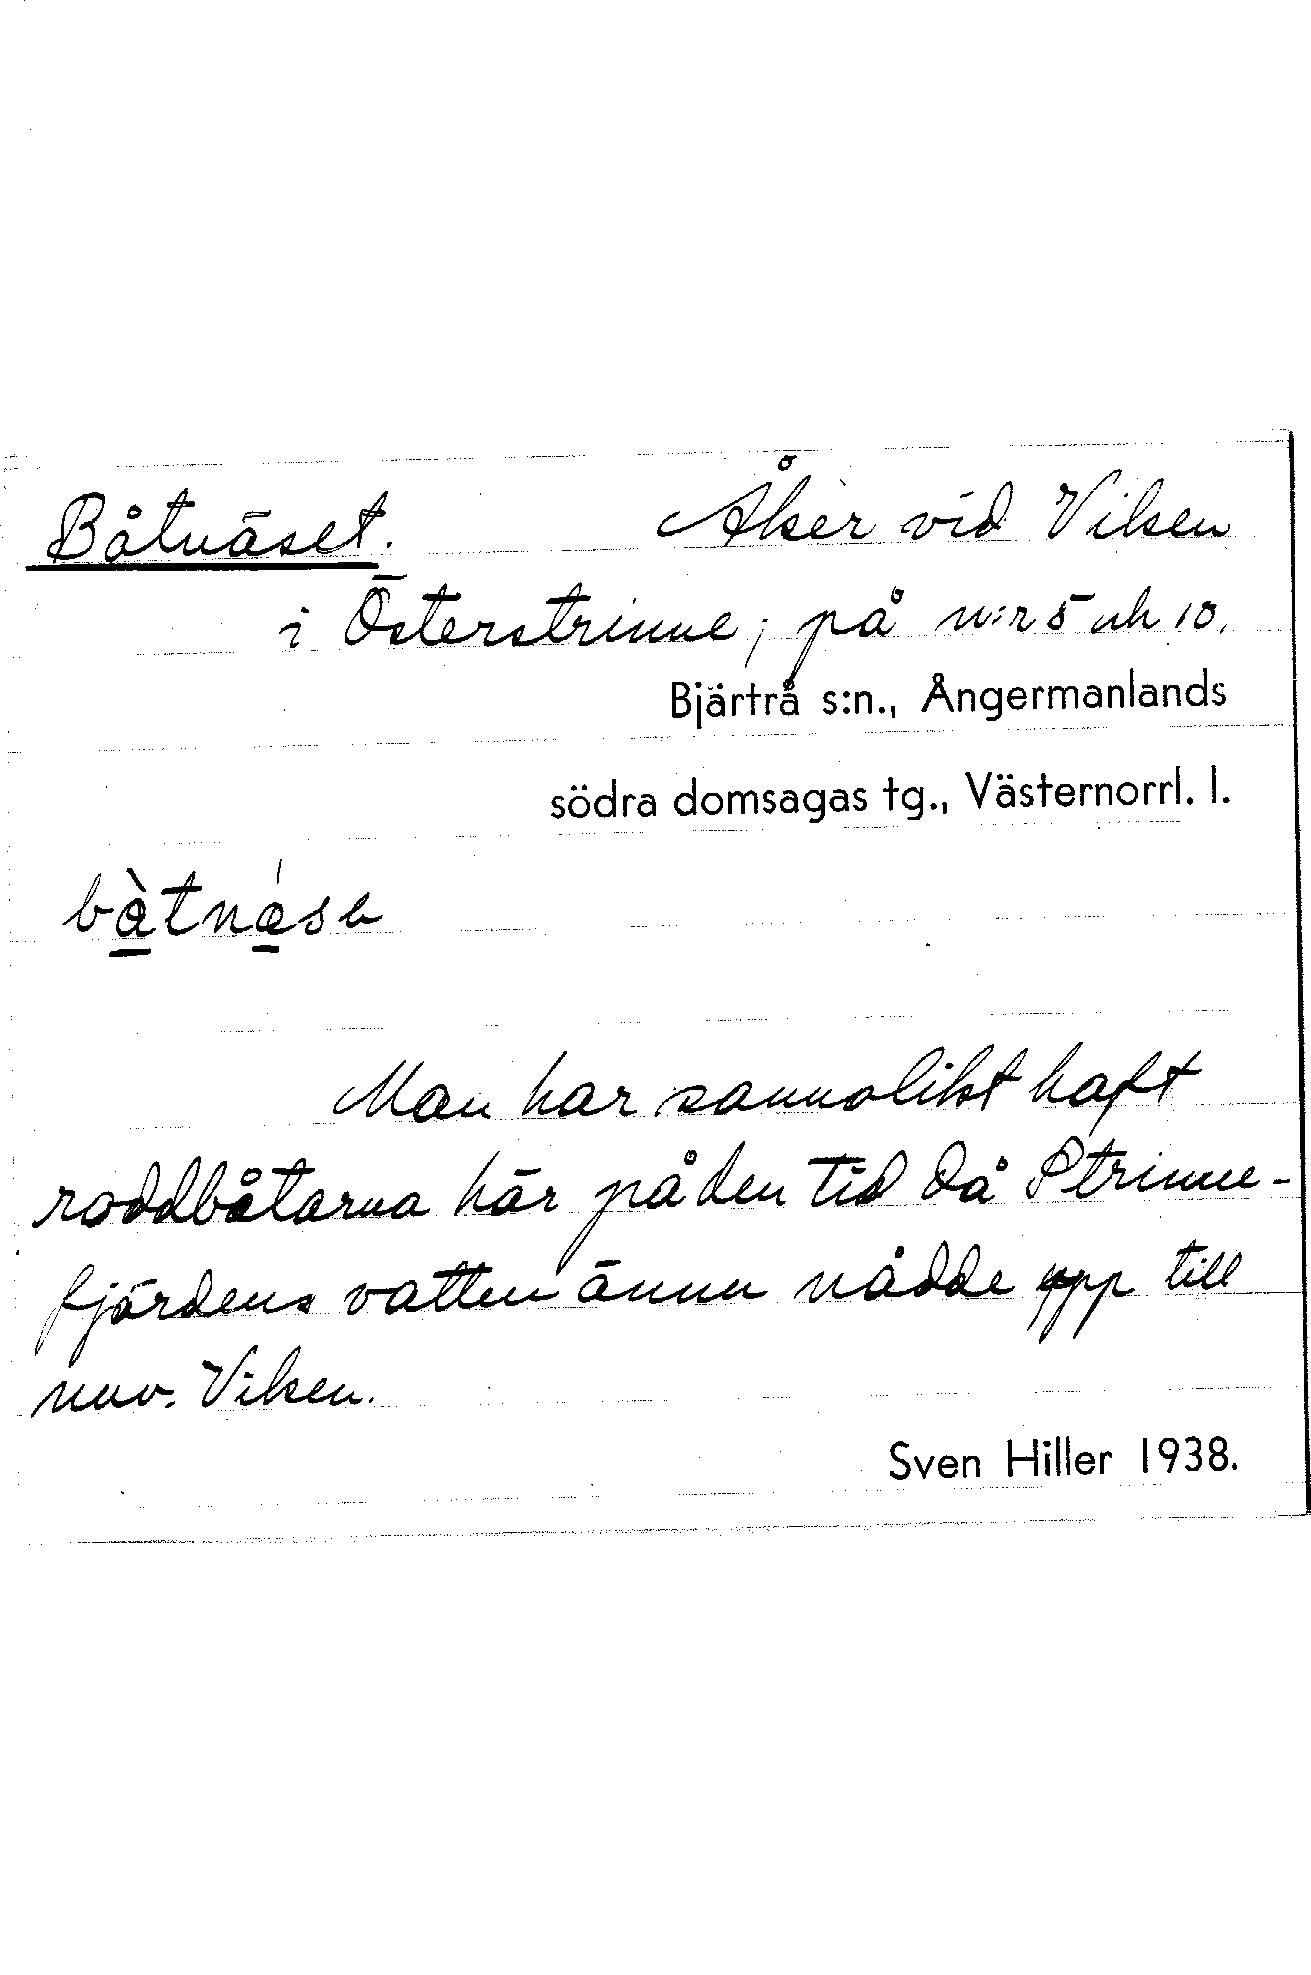 Båtnäset. Åker vid Viken
i Österstrinne; på n:r 5 och 10.
Bjärtrå s:n., Ångermanlands
södra domsagas tg., Västernorrl. l.
Man har sannolikt haft
roddbåtarna här på den tid då Strinne-
fjärdens vatten ännu nådde upp till
nuv. Viken.
Sven Hiller 1938.